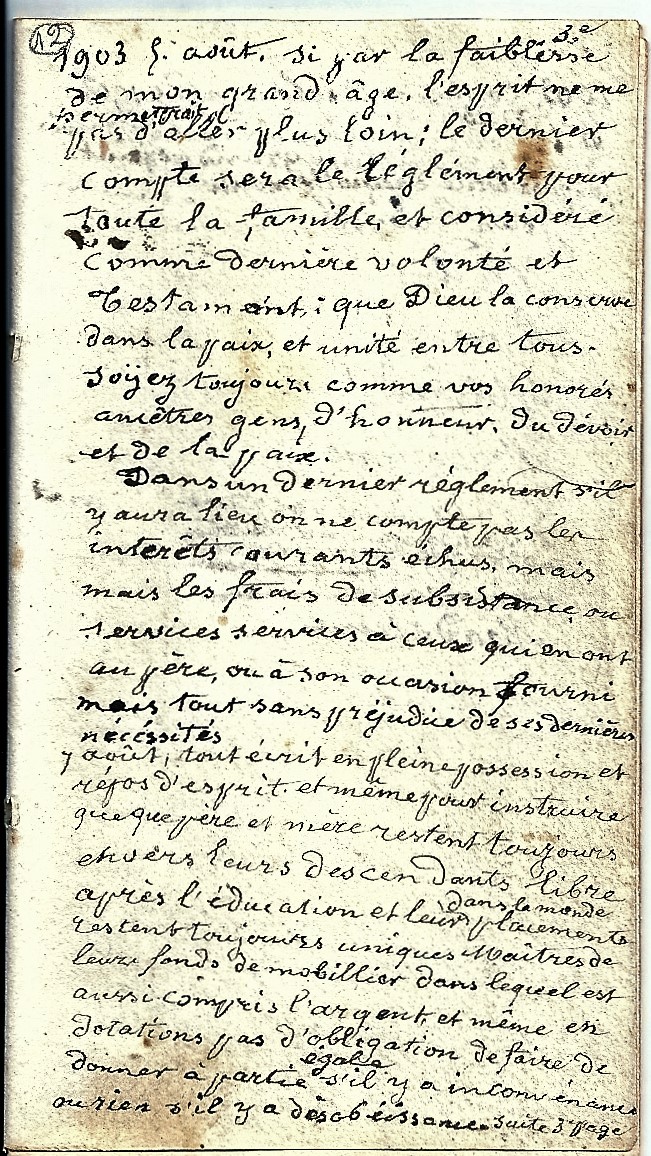 12
3.e
1903 5. août. si par la faiblesse
de mon grand âge, l'esprit ne me
permettrait pl
pas d'aller plus loin; le dernier
compte sera le réglément pour
toute la famille, et considéré
comme dernière volonté et
Testament; que Dieu la conserve
dans la paix, et unité entre tous.
Soÿez toujours comme vos honorés
ancêtres gens, d'honneur, du dévoir
et de la paix.
Dans un dernier réglement s'il
y aura lieu on ne compte pas les
interêts courants échus, mais
mais les frais de subsistance, ou
services services à ceux qui en ont
au père, ou à son occasion fourni
mais tout sans préjudice de ses dernières
nécéssités
7 août, tout écrit en pleine possession et
répos d'esprit. et même pour instruire
que que père et mère restent toujours
envers leurs descendants libre
dans le monde
après l'éducation et leurs placements
restent toujours uniques Maîtres de
leurs fonds de mobillier dans lequel est
aussi compris l'argent, et même en
dotations pas d'obligation de faire de
égale
donner à partie s'il y a inconvénance
ou rien s'il y a désobéissance. suite 3e page